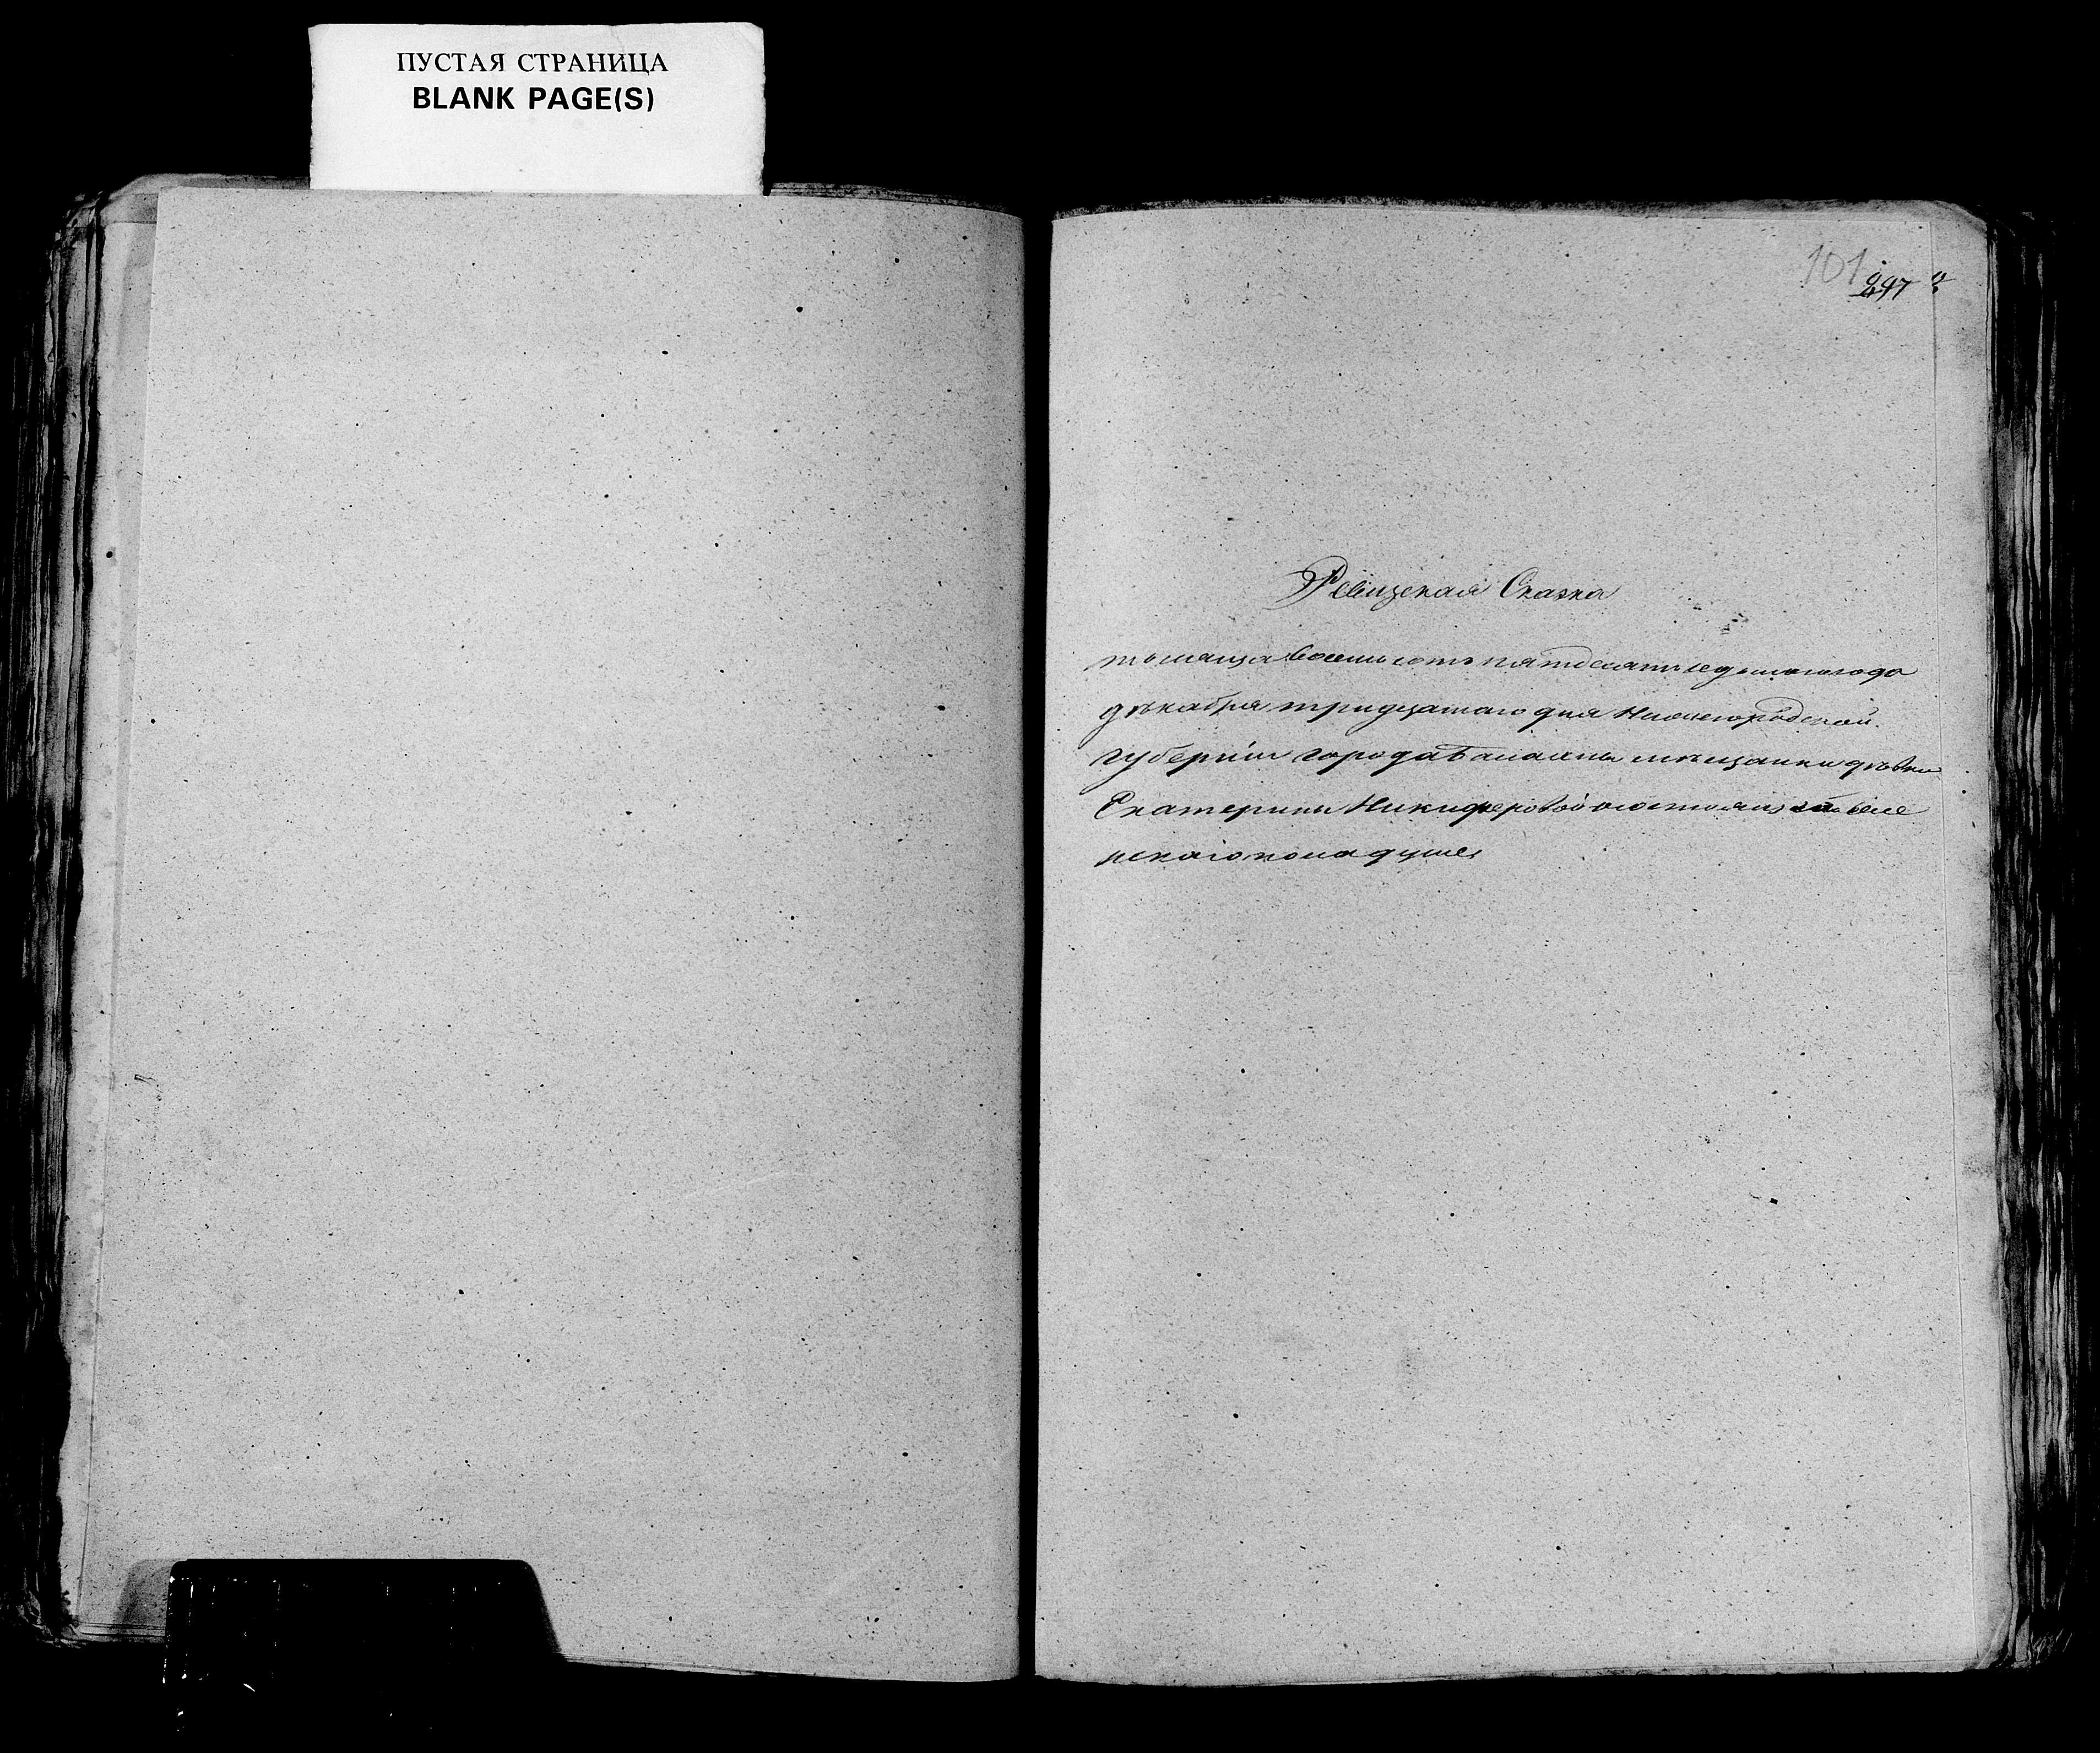 ПУСТАЯ СТРАНИЦА
BLANK PAGE(S)
101
247
Ревизская Сказка
тысяща восемьсотъ пятдесятъ седьмого года
дѣкабря тридцатаго дня Нижегородской
губерніи города Балахны мещанки дѣвки
Екатерины Никифоровой о состоящ
нскаго пола душе